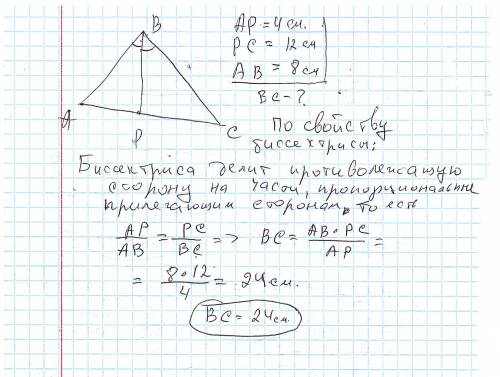 B
A
P
C
AP = 4 см.
PC = 12 см
AB = 8 см
BC - ?
По свойству
биссектрисы:
Биссектриса делит противолежащую
сторону на части, пропорциональные
прилегающим сторонам, то есть
AP/AB = PC/BC => BC = AB·PC/AP =
= 8·12/4 = 24 см.
BC = 24 см.